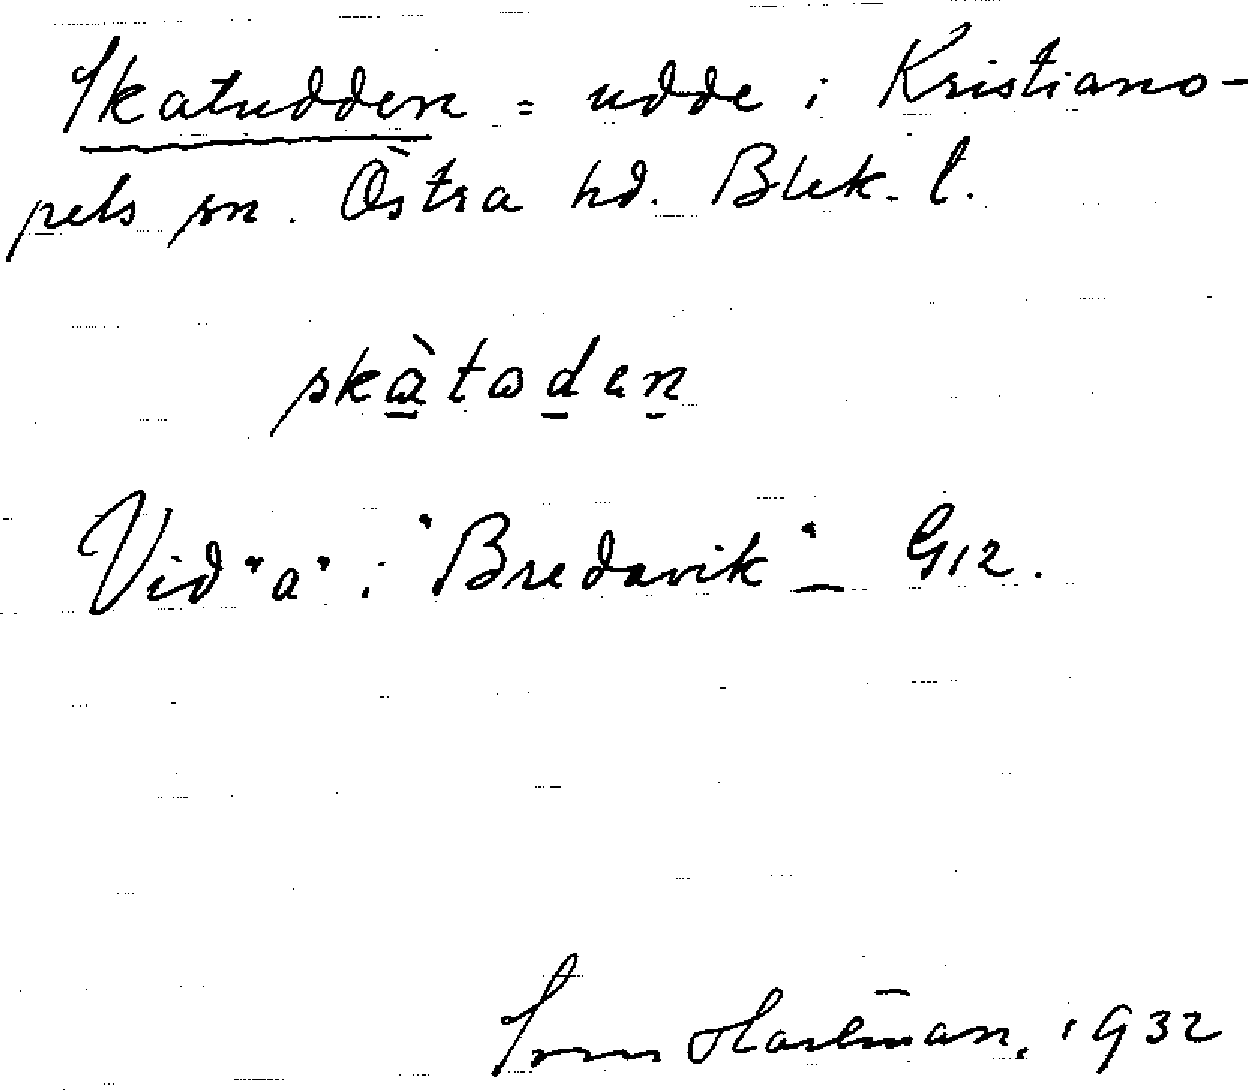 Skatudden = udde i Kristiano-
pels sn. Östra hd. Blek. l.
skàtoden
Vid "a" i "Bredavik" – G12.
Hartman. 1932